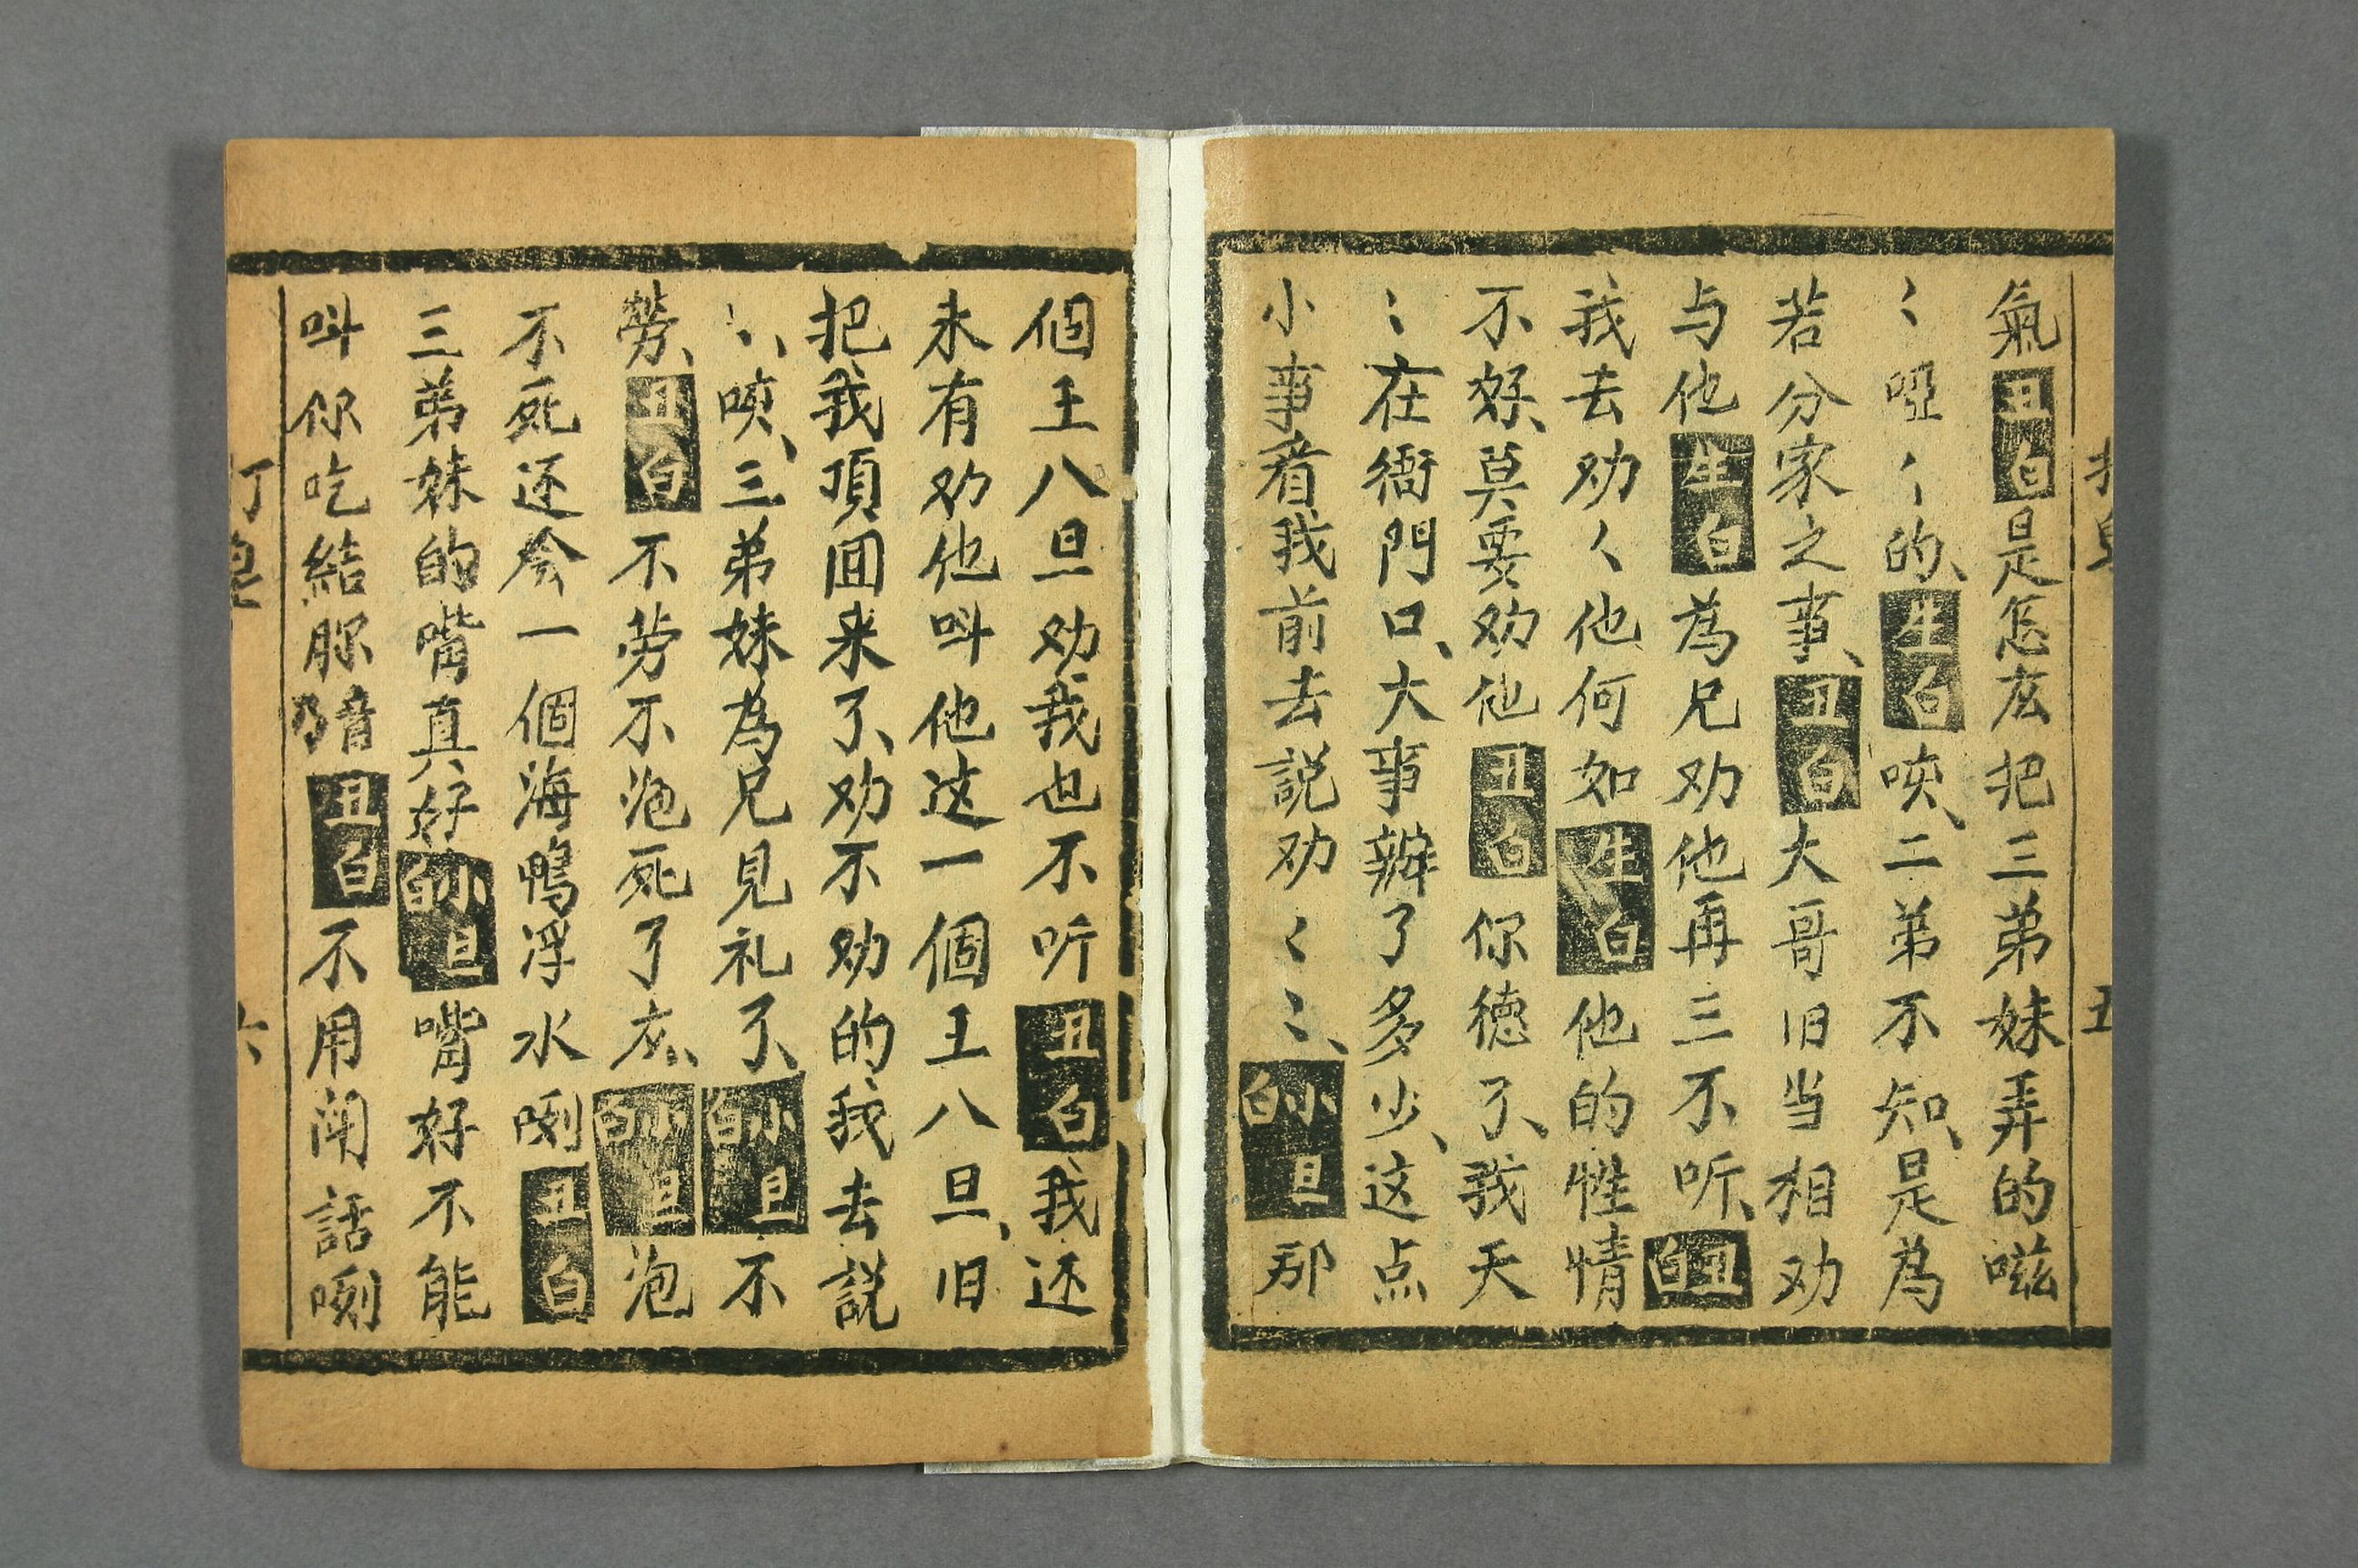 氣丑白是怎庅把三弟妹弄的嗞
〻啞〻的、生白唉、二弟不知、是為
若分家之事、丑白大哥旧当相劝
与他生白為兄劝他再三不听、丑白
我去劝〻他何如生白他的性情
不好、莫要劝他丑白你德了、我天
〻在衙門口、大事辦了多少、这点
小事看我前去説劝〻〻、小旦白那
五
個王八旦劝我也不听丑白我还
未有劝他呌他这一個王八旦、旧
把我頂回来了、劝不劝的我去説
〻、唉、三弟妹為兄見礼了、小旦白不
劳、丑白不劳不泡死了庅、小旦白泡
不死还会一個海鴨浮水咧丑白
三弟妹的嘴真好小旦白嘴好不能
呌你吃結丑白不用闲話咧
打
六